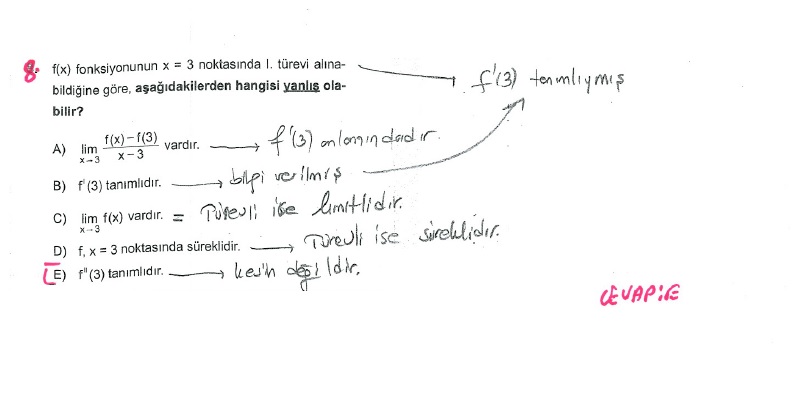 8. f(x) fonksiyonunun x = 3 noktasında I. türevi alına-
bildiğine göre, aşağıdakilerden hangisi yanlış ola-
bilir?
f'(3) tanımlıymış
A) lim x→3 f(x) – f(3) / x – 3 vardır. → f'(3) anlamındadır.
B) f'(3) tanımlıdır. → bilgi verilmiş
C) lim x→3 f(x) vardır. = Türevli ise limitlidir.
D) f, x = 3 noktasında süreklidir. → Türevli ise süreklidir.
E) f"(3) tanımlıdır. → kesin değildir.
CEVAP:E